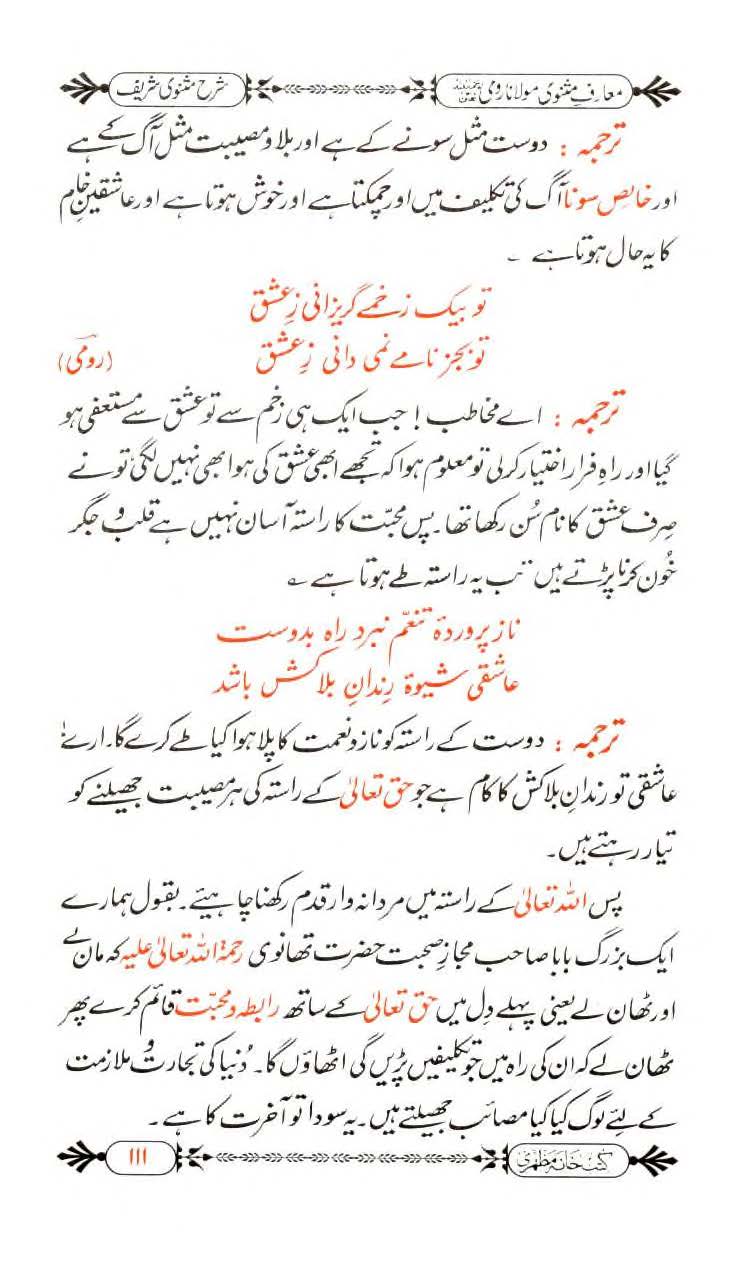 معارفِ مثنوی مولانا رومی رحمۃ اللہ علیہ
شرح مثنوی شریف
ترجمہ : دوست مثل سونے کے ہے اور بلا و مصیبت مثل آگ کے ہے
اور خالص سونا آگ کی تکلیف میں اور چمکتا ہے اور خوش ہوتا ہے اور عاشقینِ خام
کا یہ حال ہوتا ہے ۔
تو بیک زخمے گریزانی زِ عشق
تو بجز نامے نمی دانی زِ عشق (رومیؒ)
ترجمہ : اے مخاطب! جب ایک ہی زخم سے تو عشق سے مستعفی ہو
گیا اور راہِ فرار اختیار کرلی تو معلوم ہوا کہ تجھے ابھی عشق کی ہوا بھی نہیں لگی، تو نے
صِرف عشق کا نام سُن رکھا تھا۔ پس محبّت کا راستہ آسان نہیں ہے قلب و جگر
خُون کرنا پڑتے ہیں تب یہ راستہ طے ہوتا ہے ؎
ناز پروردۂ تنعّم نبرد راہ بدوست
عاشقی شیوۂ رِندانِ بلاکش باشد
ترجمہ : دوست کے راستہ کو ناز و نعمت کا پلا ہوا کیا طے کرے گا۔ ارے!
عاشقی تو رندانِ بلاکش کا کام ہے جو حق تعالیٰ کے راستہ کی ہر مصیبت جھیلنے کو
تیار رہتے ہیں۔
پس اللہ تعالیٰ کے راستہ میں مردانہ وار قدم رکھنا چاہیئے۔ بقول ہمارے
ایک بزرگ بابا صاحب مجازِ صحبت حضرت تھانوی رحمۃ اللہ تعالیٰ علیہ کہ مان لے
اور ٹھان لے یعنی پہلے دِل میں حق تعالیٰ کے ساتھ رابطہ و محبّت قائم کرے پھر
ٹھان لے کہ ان کی راہ میں جو تکلیفیں پڑیں گی اٹھاؤں گا۔ دُنیا کی تجارت و ملازمت
کے لئے لوگ کیا کیا مصائب جھیلتے ہیں۔ یہ سودا تو آخرت کا ہے ۔
کتب خانہ مظہری
۱۱۱